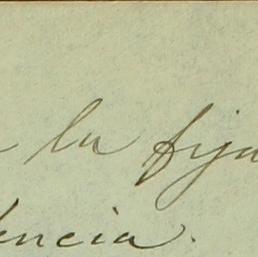 la fija
encia.